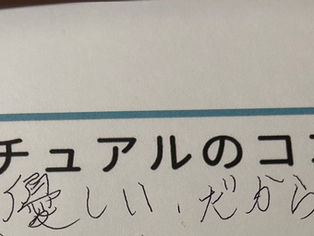 チュアルのコ
優しい、だから